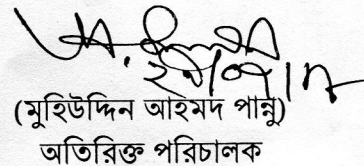 (মুহিউদ্দিন আহমদ পান্নু)
অতিরিক্ত পরিচালক